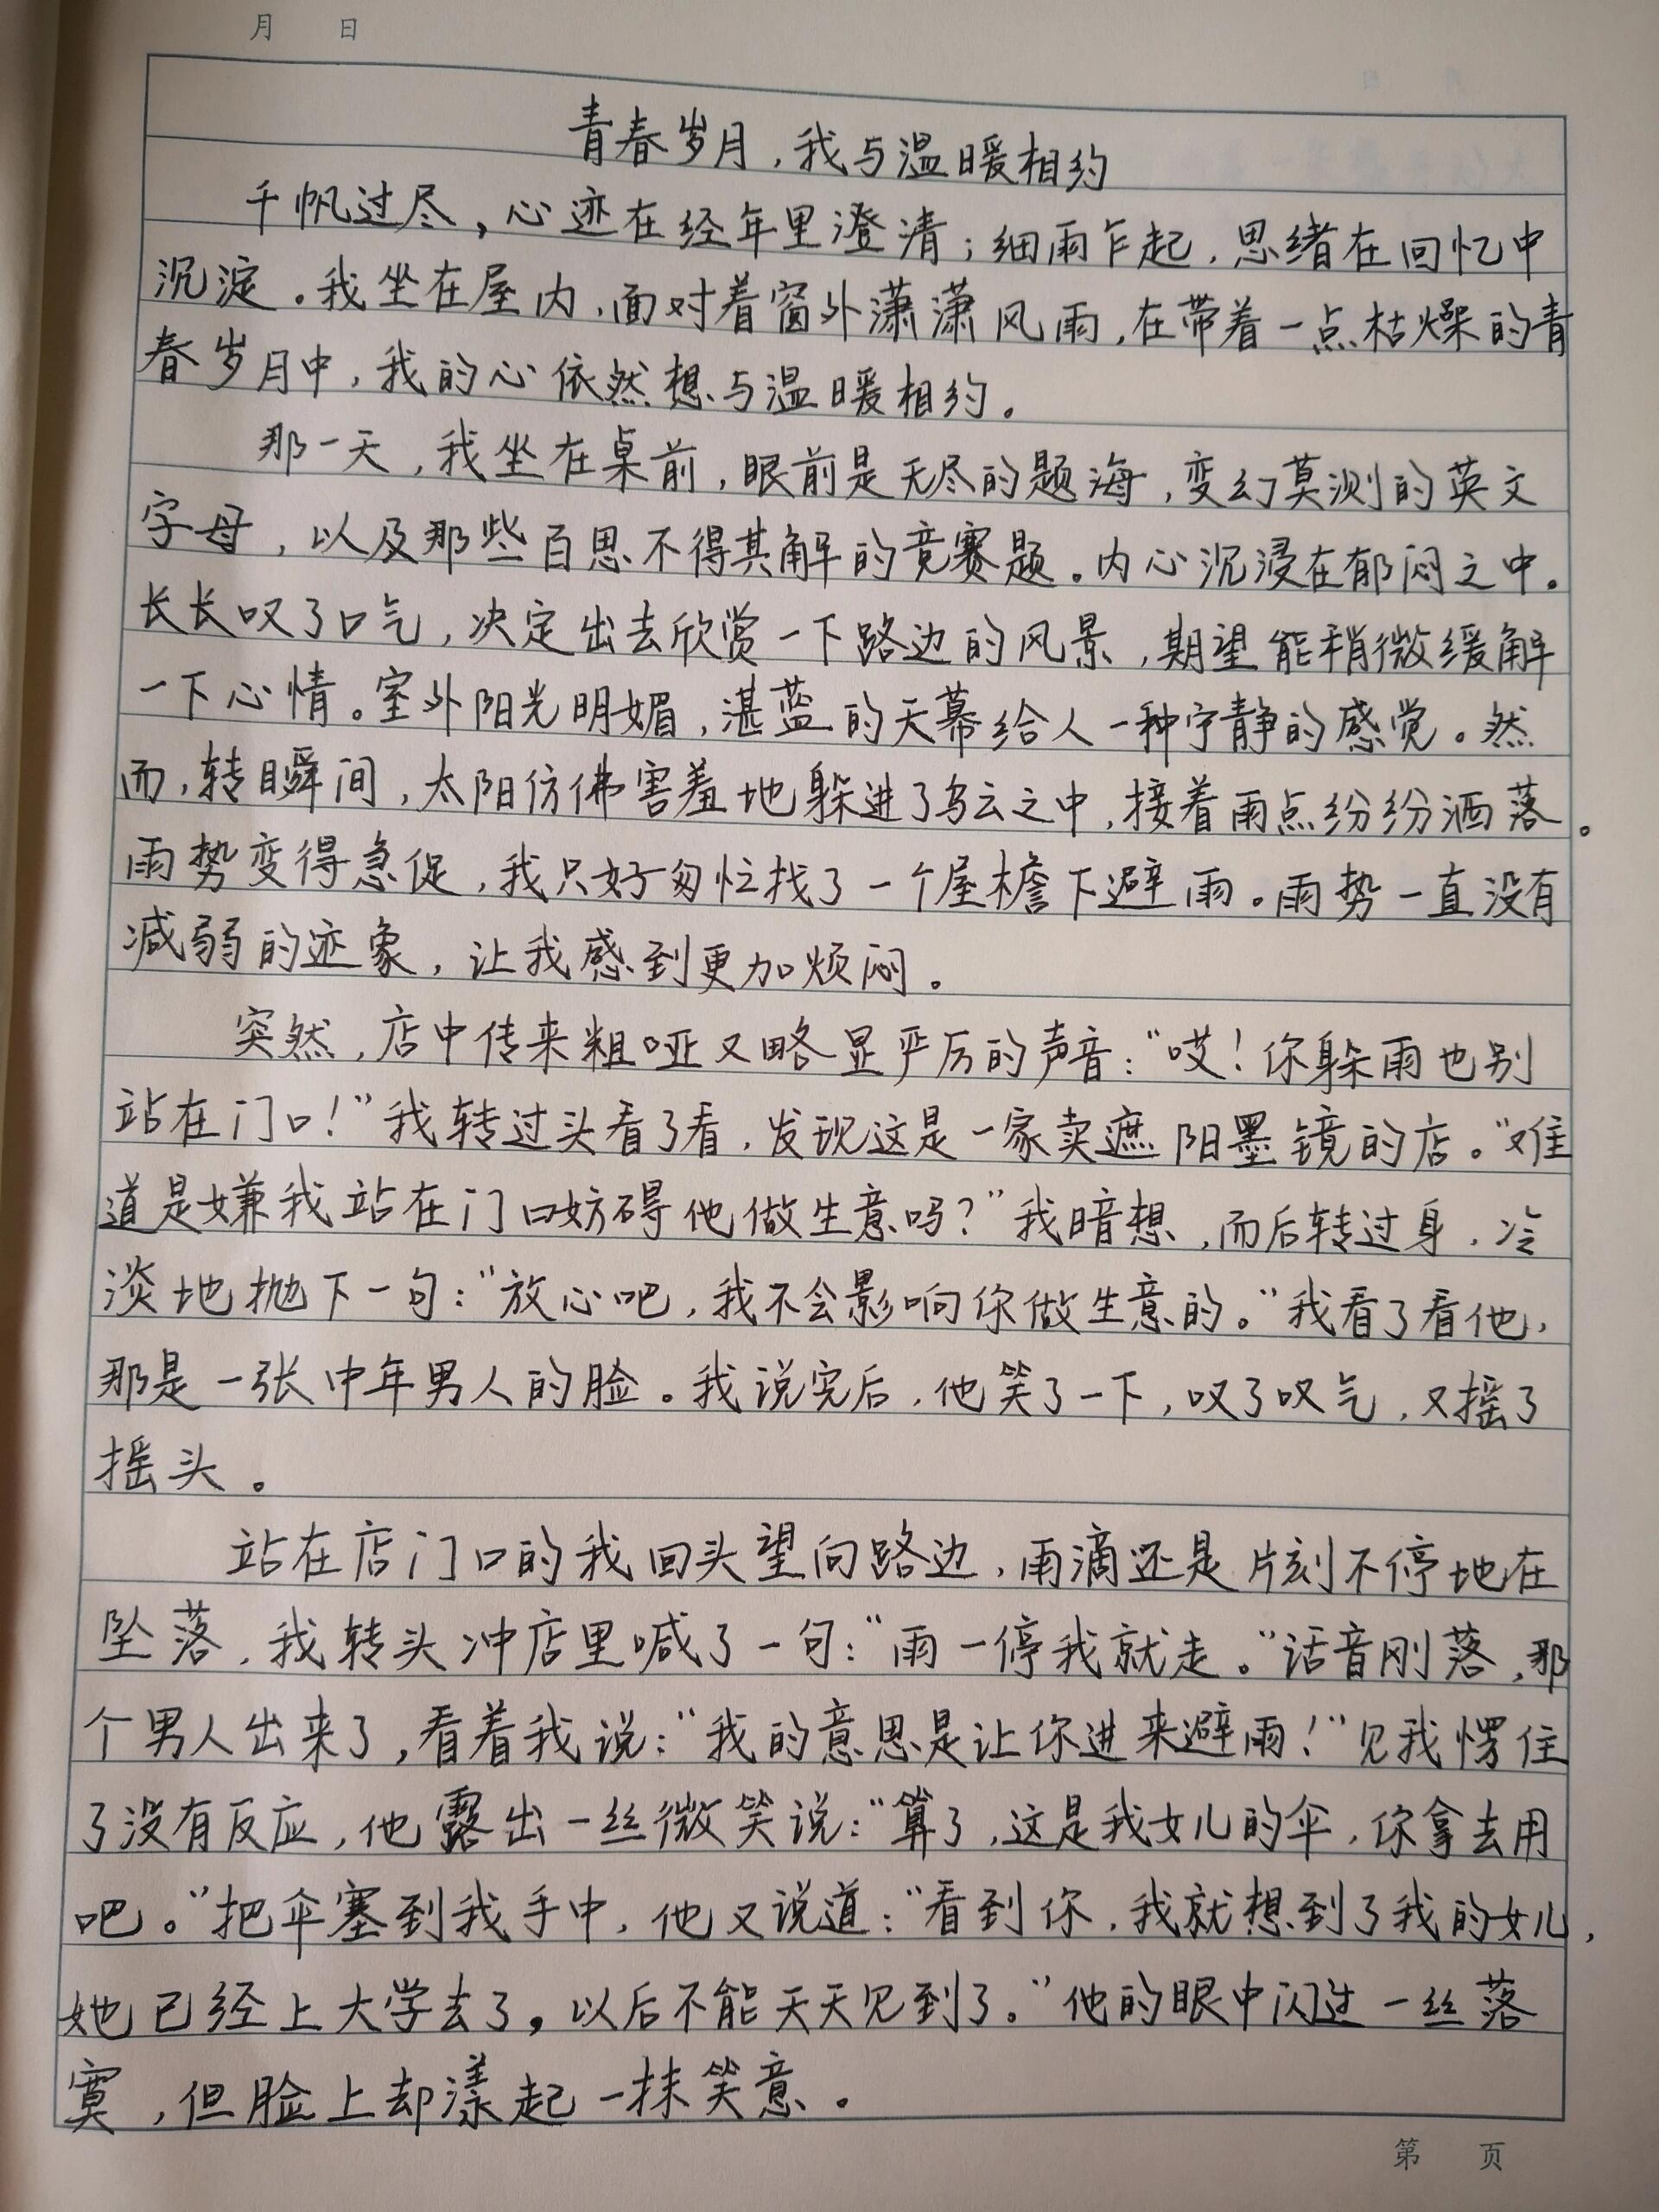 月 日
青春岁月，我与温暖相约
千帆过尽，心迹在经年里澄清；细雨乍起，思绪在回忆中
沉淀。我坐在屋内，面对着窗外潇潇风雨，在带着一点枯燥的青
春岁月中，我的心依然想与温暖相约。
那一天，我坐在桌前，眼前是无尽的题海，变幻莫测的英文
字母，以及那些百思不得其解的竞赛题。内心沉浸在郁闷之中。
长长叹了口气，决定出去欣赏一下路边的风景，期望能稍微缓解
一下心情。室外阳光明媚，湛蓝的天幕给人一种宁静的感觉。然
而，转瞬间，太阳仿佛害羞地躲进了乌云之中，接着雨点纷纷洒落。
雨势变得急促，我只好匆忙找了一个屋檐下避雨。雨势一直没有
减弱的迹象，让我感到更加烦闷。
突然，店中传来粗哑又略显严厉的声音：“哎！你躲雨也别
站在门口！”我转过头看了看，发现这是一家卖遮阳墨镜的店。“难
道是嫌我站在门口妨碍他做生意吗？”我暗想，而后转过身，冷
淡地抛下一句：“放心吧，我不会影响你做生意的。”我看了看他，
那是一张中年男人的脸。我说完后，他笑了一下，叹了叹气，又摇了
摇头。
站在店门口的我回头望向路边，雨滴还是片刻不停地在
坠落，我转头冲店里喊了一句：“雨一停我就走。”话音刚落，那
个男人出来了，看着我说：“我的意思是让你进来避雨！”见我愣住
了没有反应，他露出一丝微笑说：“算了，这是我女儿的伞，你拿去用
吧。”把伞塞到我手中，他又说道：“看到你，我就想到了我的女儿，
她已经上大学去了，以后不能天天见到了。”他的眼中闪过一丝落
寞，但脸上却漾起一抹笑意。
第 页